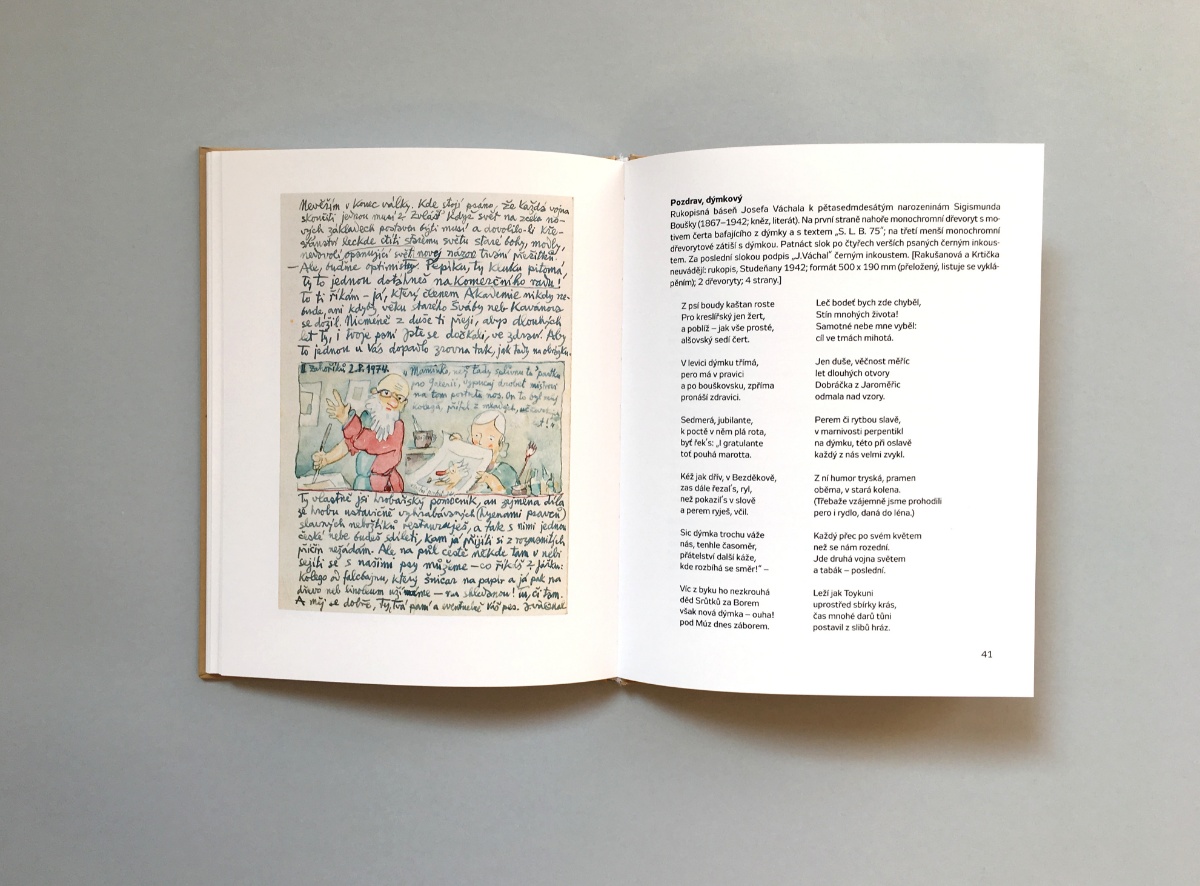 Nevěřím v konec války. Kde stojí psáno, že každá vojna
skončiti jednou musí? Zvlášť když svět na zcela no-
vých základech postaven býti musí a dovolilo-li kře-
sťanství leckde ctíti starému světu staré bohy, modly,
nedovolí opanující světi nový názor trvání přežitků.
— Ale, buďme optimisty. Pepíku, ty kluku pitomá,
ty to jednou dotáhneš na Komerčního radu!
To ti říkám – já, který členem Akademie nikdy ne-
budu, ani kdyby věku starého Švába neb Kavánova
se dožil. Nicméně z duše ti přeji, abys dlouhých
let ty, i tvoje paní jste se dočkali, ve zdraví. Aby
to jednou u Vás dopadlo zrovna tak, jak tady na obrázku.
Záhoříků 2.P. 1974.
„Maminko, než tady splivnu te
pro Galerii, vygumuj drobet mistrovi
na tom portrétu nos. On to byl můj
kolega,
Ty vlastně jsi hrobařský pomocník, an zejména díla
ze hrobu ustavičně vyhrabávaných (hyenami psaven)
slavných nebožtíků restauruješ, a tak s nimi jednou
české nebe budeš sdíleti, kam já přijíti si z rozmanitých
příčin nežádám. Ale na půl cestě někde tam v nebi
sejíti se s našimi psy můžeme – co říkáš? Jářku:
kolego od falcbajnu, který šnicar na papír a já pak na
dřevo neb linoleum užíváme – na shledanou! tu, či tam.
A měj se dobře, Ty, tvá paní a eventuelně Váš pes. JVáchal
Pozdrav, dýmkový
Rukopisná báseň Josefa Váchala k pětasedmdesátým narozeninám Sigismunda
Boušky (1867–1942; kněz, literát). Na první straně nahoře monochromní dřevoryt s mo-
tivem čerta bafajícího z dýmky a s textem „S. L. B. 75“; na třetí menší monochromní
dřevorytové zátiší s dýmkou. Patnáct slok po čtyřech verších psaných černým inkous-
tem. Za poslední slokou podpis „J.Váchal“ černým inkoustem. [Rakušanová a Krtička
neuvádějí: rukopis, Studeňany 1942; formát 500 x 190 mm (přeložený, listuje se vyklá-
pěním); 2 dřevoryty; 4 strany.]
Z psí boudy kaštan roste
Pro kreslířský jen žert,
a poblíž – jak vše prosté,
alšovský sedí čert.
V levici dýmku třímá,
pero má v pravici
a po bouškovsku, zpříma
pronáší zdravici.
Sedmerá, jubilante,
k poctě v něm plá rota,
byť řek’s: „I gratulante
toť pouhá marotta.
Kéž jak dřív, v Bezděkově,
zas dále řezal’s, ryl,
než pokazil’s v slově
a perem ryješ, včil.
Sic dýmka trochu váže
nás, tenhle časoměr,
přátelství další káže,
kde rozbíhá se směr!“ –
Víc z byku ho nezkrouhá
děd Srůtků za Borem
však nová dýmka – ouha!
pod Múz dnes záborem.
Leč bodeť bych zde chyběl,
Stín mnohých života!
Samotné nebe mne vyběl:
cíl ve tmách mihotá.
Jen duše, věčnost měříc
let dlouhých otvory
Dobráčka z Jaroměřic
odmala nad vzory.
Perem či rytbou slavě,
v marnivosti perpentikl
na dýmku, této při oslavě
každý z nás velmi zvykl.
Z ní humor tryská, pramen
oběma, v stará kolena.
(Třebaže vzájemně jsme prohodili
pero i rydlo, daná do léna.)
Každý přec po svém květem
než se nám rozední.
Jde druhá vojna světem
a tabák – poslední.
Leží jak Toykuni
uprostřed sbírky krás,
čas mnohé darů tůni
postavil z slibů hráz.
41